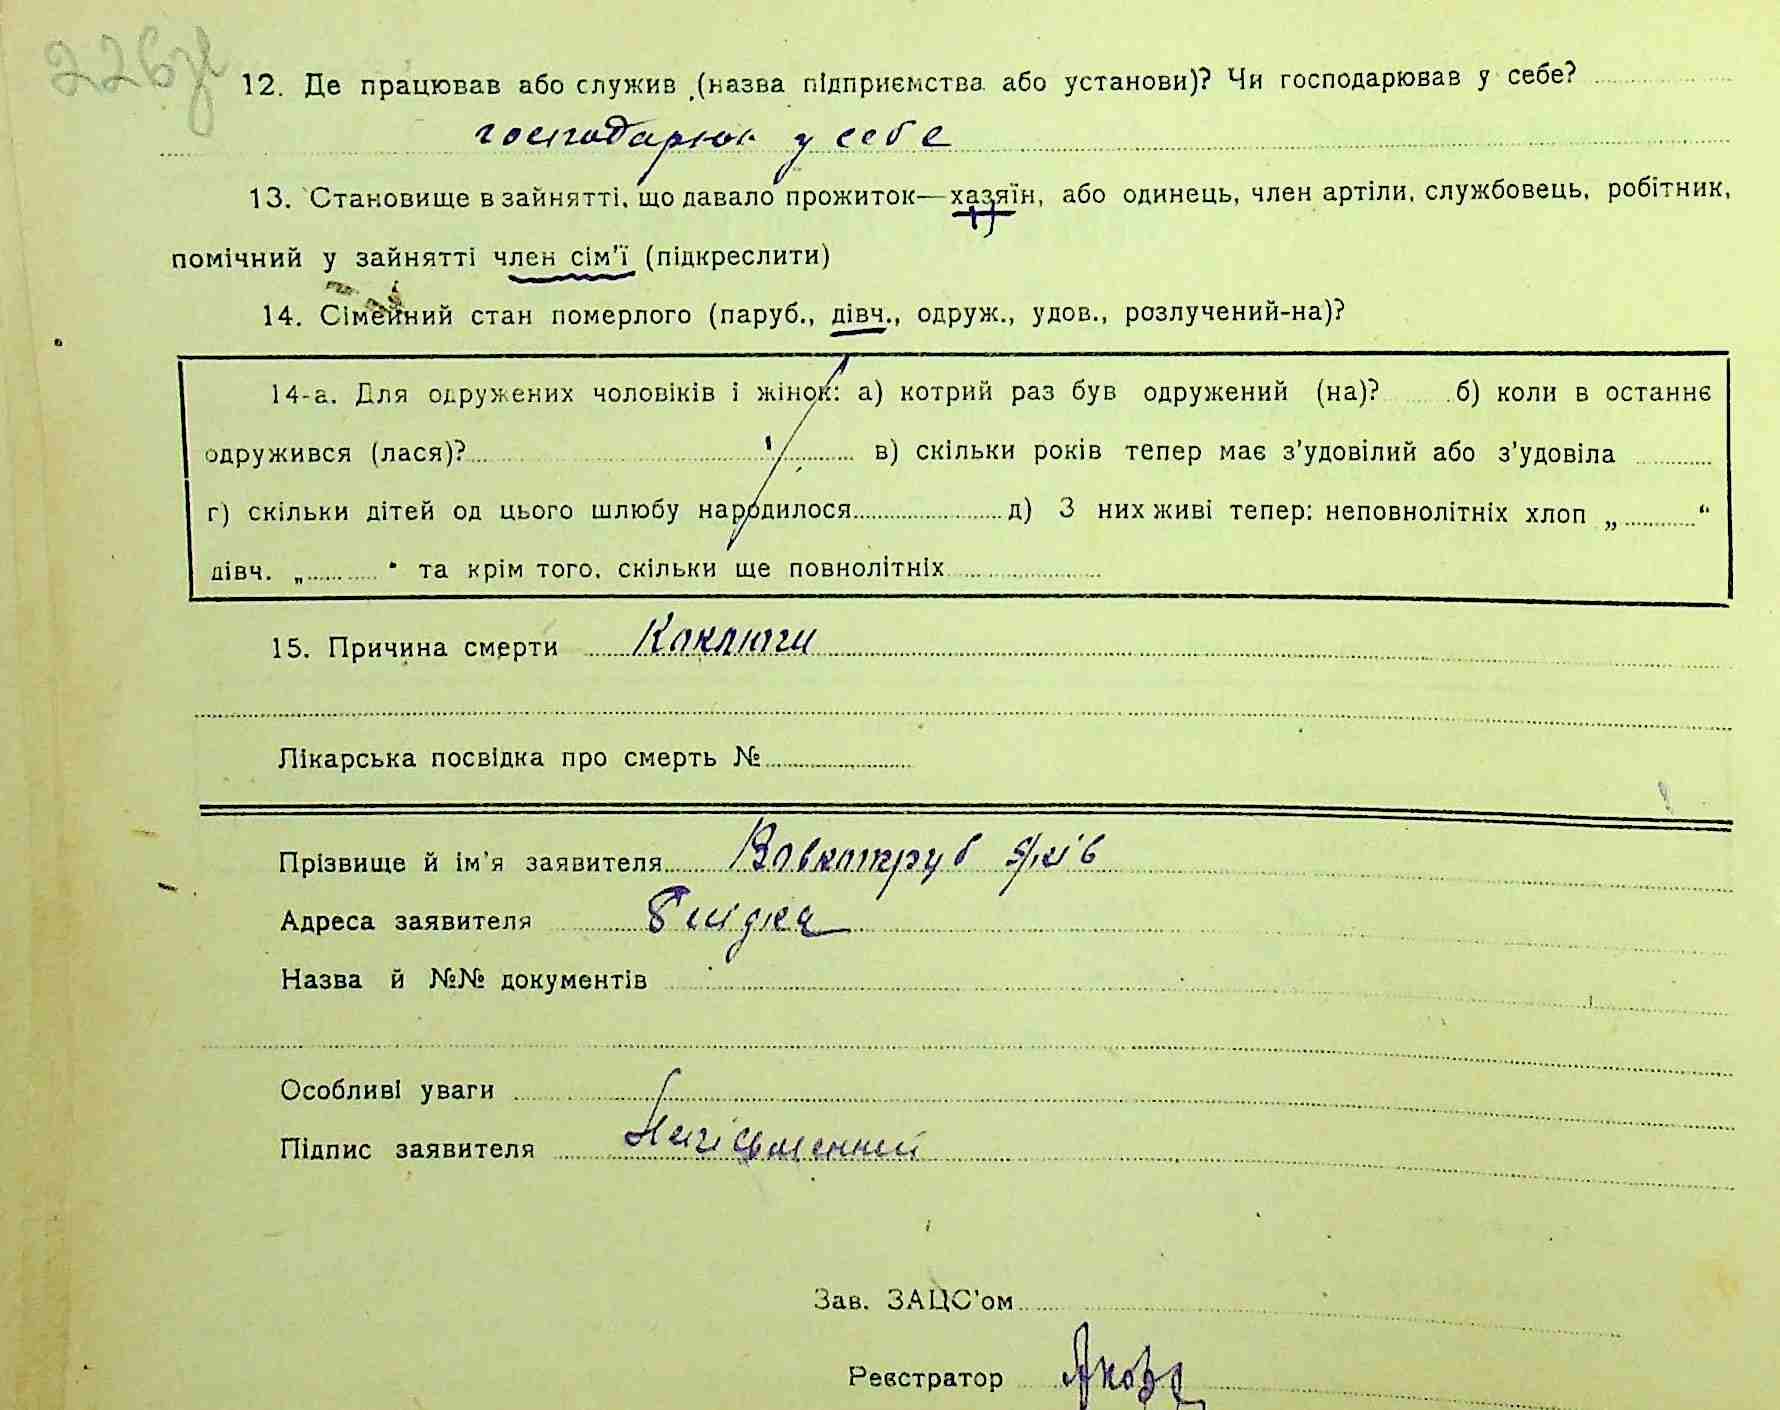 226зв
12. Де працював або служив (назва підприємства або установи)? Чи господарював у себе?
господарює у себе
13. Становище в зайнятті, що давало прожиток—хазяїн, або одинець, член артіли, службовець, робітник,
помічний у зайнятті член сім'ї (підкреслити)
14. Сімейний стан померлого (паруб., дівч., одруж., удов., розлучений-на)?
14-а. Для одружених чоловіків і жінок: а) котрий раз був одружений (на)? б) коли в останнє
одружився (лася)? в) скільки років тепер має з'удовілий або з'удовіла
г) скільки дітей од цього шлюбу народилося д) З них живі тепер: неповнолітніх хлоп „ “
дівч. „ “ та крім того, скільки ще повнолітніх
15. Причина смерти Коклюги
Лікарська посвідка про смерть №
Прізвище й ім'я заявителя Вовкотруб Яків
Адреса заявителя
Назва й №№ документів
Особливі уваги
Підпис заявителя
Зав. ЗАЦС'ом
Реєстратор